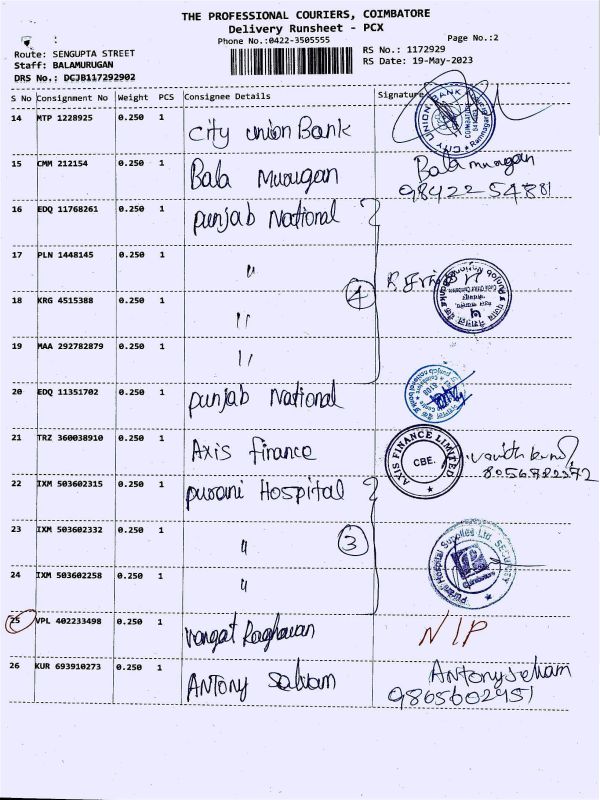 THE PROFESSIONAL COURIERS, COIMBATORE
Delivery Runsheet - PCX
Phone No.:0422-3505555
Page No.:2
Route: SENGUPTA STREET
Staff: BALAMURUGAN
DRS No.: DCJB117292902
RS No.: 1172929
RS Date: 19-May-2023
S No Consignment No Weight PCS Consignee Details Signature
14 MTP 1228925 0.250 1 City Union Bank
CITY UNION BANK
15 CMM 212154 0.250 1 Bala Murugan Balamurugan
9842254881
16 EDQ 11768261 0.250 1 punjab National
17 PLN 1448145 0.250 1 "
18 KRG 4515388 0.250 1 "
4
19 MAA 292782879 0.250 1 "
20 EDQ 11351702 0.250 1 punjab National
21 TRZ 360038910 0.250 1 Axis finance
AXIS FINANCE LIMITED
CBE.
8056782372
22 IXM 503602315 0.250 1 purani Hospital
23 IXM 503602332 0.250 1 "
3
24 IXM 503602258 0.250 1 "
Purani Hospital Supplies Ltd SECURITY
25 VPL 402233498 0.250 1 Vangat Raghavan N/P
26 KUR 693910273 0.250 1 Antony Selvam Antony Selvam
9865602951